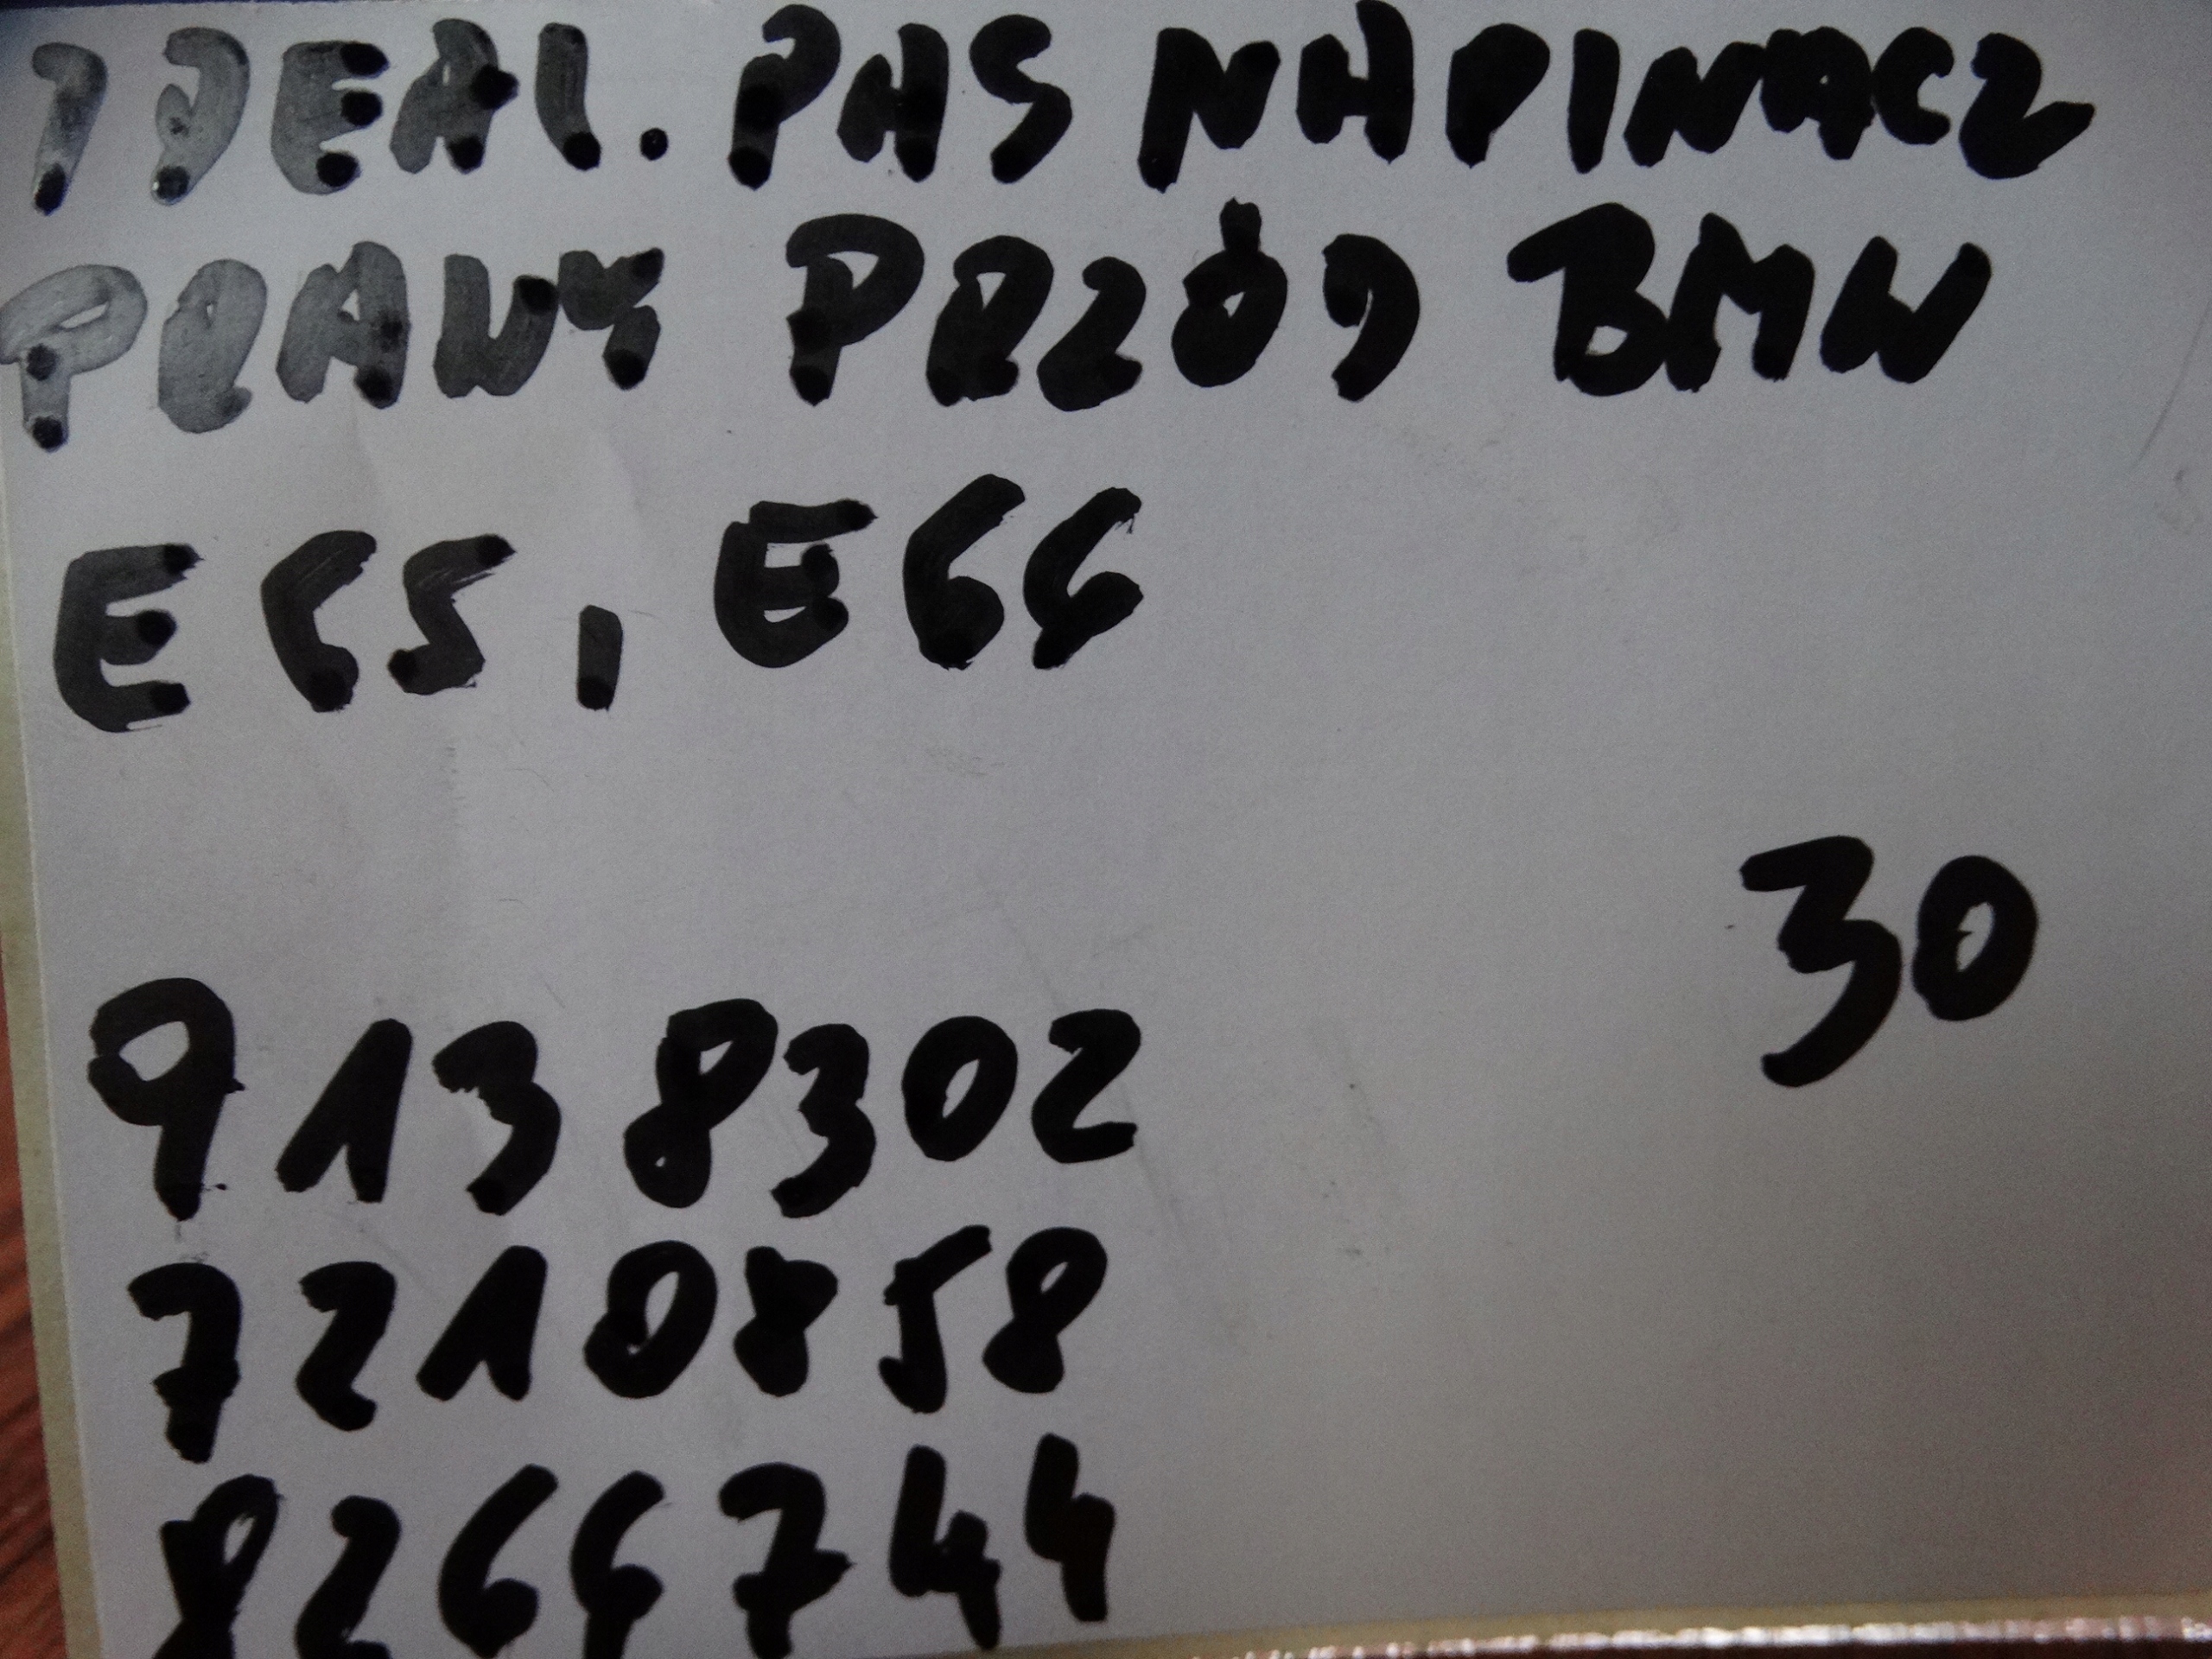 IDEAL. PAS NAPINACZ
PRAWY PRZÓD BMW
E65, E66
30
9138302
7210858
8266744